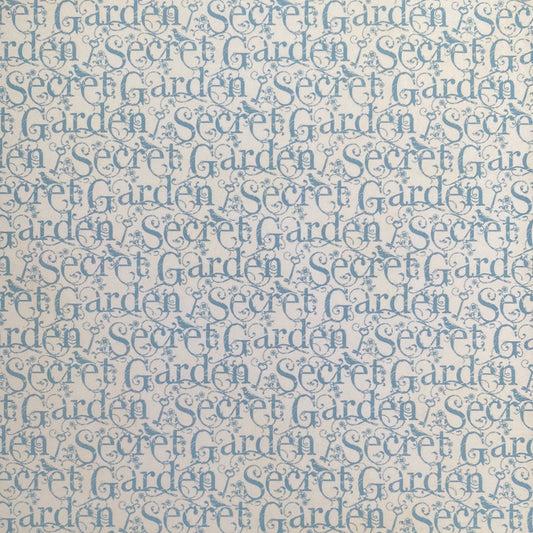 rden Secret Garden Secret Gar
Secret Garden Secret Garden
t Garden Secret Garden Secret
arden Secret Garden Secret G
Secret Garden Secret Garden
arden Secret Garden Secret
den Secret Garden Secret Garden
ret Garden Secret Garden Sec
Garden Secret Garden Secret G
Secret Garden Secret Garden
et Garden Secret Garden Secret
den Secret Garden Secret Gar
Secret Garden Secret Garden
Garden Secret Garden Secret